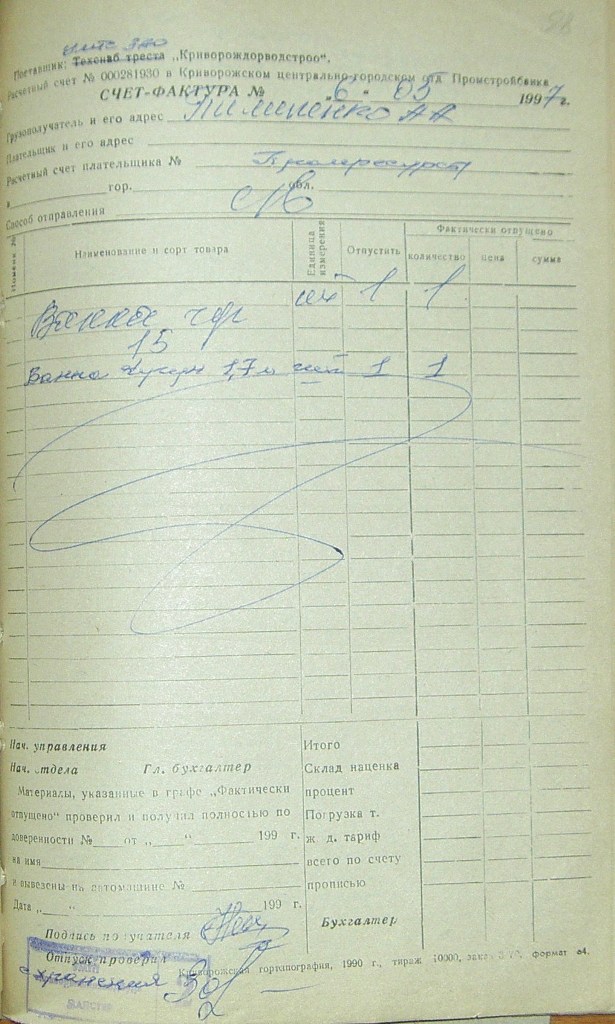 Поставщик: Техснаб треста „Криворождорводстрой“.
Расчетный счет № 000281930 в Криворожском центрально-городском отд. Промстройбанка
СЧЕТ-ФАКТУРА № „6“ 05 1997 г.
Грузополучатель и его адрес Пимпненко АА
Плательщик и его адрес
Расчетный счет плательщика №
в гор. обл.
Способ отправления с/в
Номенк. № Наименование и сорт товара Единица измерения Отпустить Фактически отпущено
количество цена сумма
Ванна чуг шт 1 1
15
Ванна чугун 1,7 м шт 1 1
Нач. управления Итого
Нач. отдела Гл. бухгалтер Склад наценка
Материалы, указанные в графе „Фактически процент
отпущено“ проверил и получил полностью по Погрузка т.
доверенности № от „ “ 199 г. ж. д. тариф
на имя всего по счету
и вывезены на автомашине № прописью
Дата „ “ 199 г.
Бухгалтер
Подпись получателя
Отпуск проверил
Криворожская гортипография, 1990 г., тираж 10000, заказ формат а4.